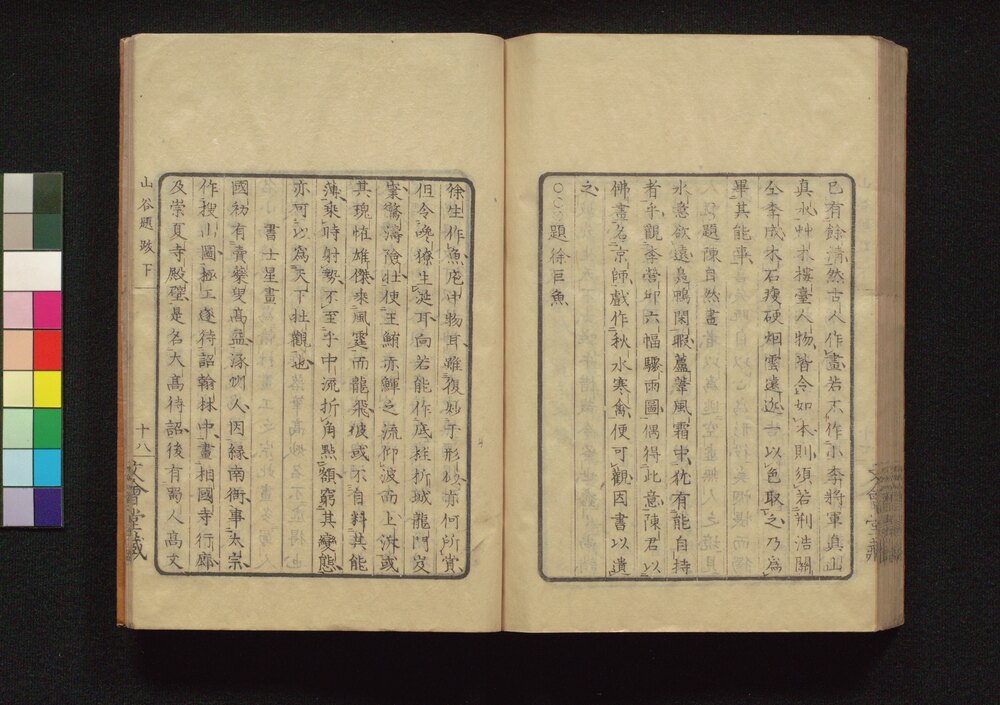 已有餘清然古人作畫若不作小李將軍真山
真水艸木樓臺人物皆令如本則須若荆浩關
仝李成木石瘦硬烟雲遠近一以色取之乃為
畢其能事
題陳自然畫
水意欲遠鳧鴨閑暇蘆葦風霜中犹有能自持
者乎觀李營丘六幅驟雨圖偶得此意陳君以
佛畫名京師戲作秋水寒禽便可觀因書以遺
之
〇〇〇題徐巨魚
徐生作魚庖中物耳雖復妙于形似亦何所賞
但令饞獠生涎耳向若能作底柱折城龍門岌
嶪驚濤險壮使王鮪赤鯶之流仰波而上泝或
其瑰怪雄傑乘風霆而龍飛彼或不自料其能
薄乘時射勢不至乎中流折角點額窮其變態
亦可以為天下壮觀也
書士星畫
國初有賣藥叟髙益涿州人因緣南衙事太宗
作搜山圖極工遂待詔翰林中畫相國寺行廊
及崇夏寺殿壁是名大髙待詔後有蜀人髙文
山谷題跋 下
十八
文會堂藏